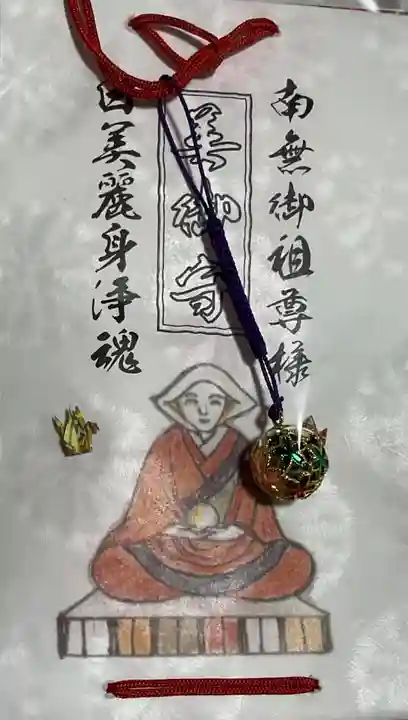 南無御祖尊様
美御寺
美麗身浄魂